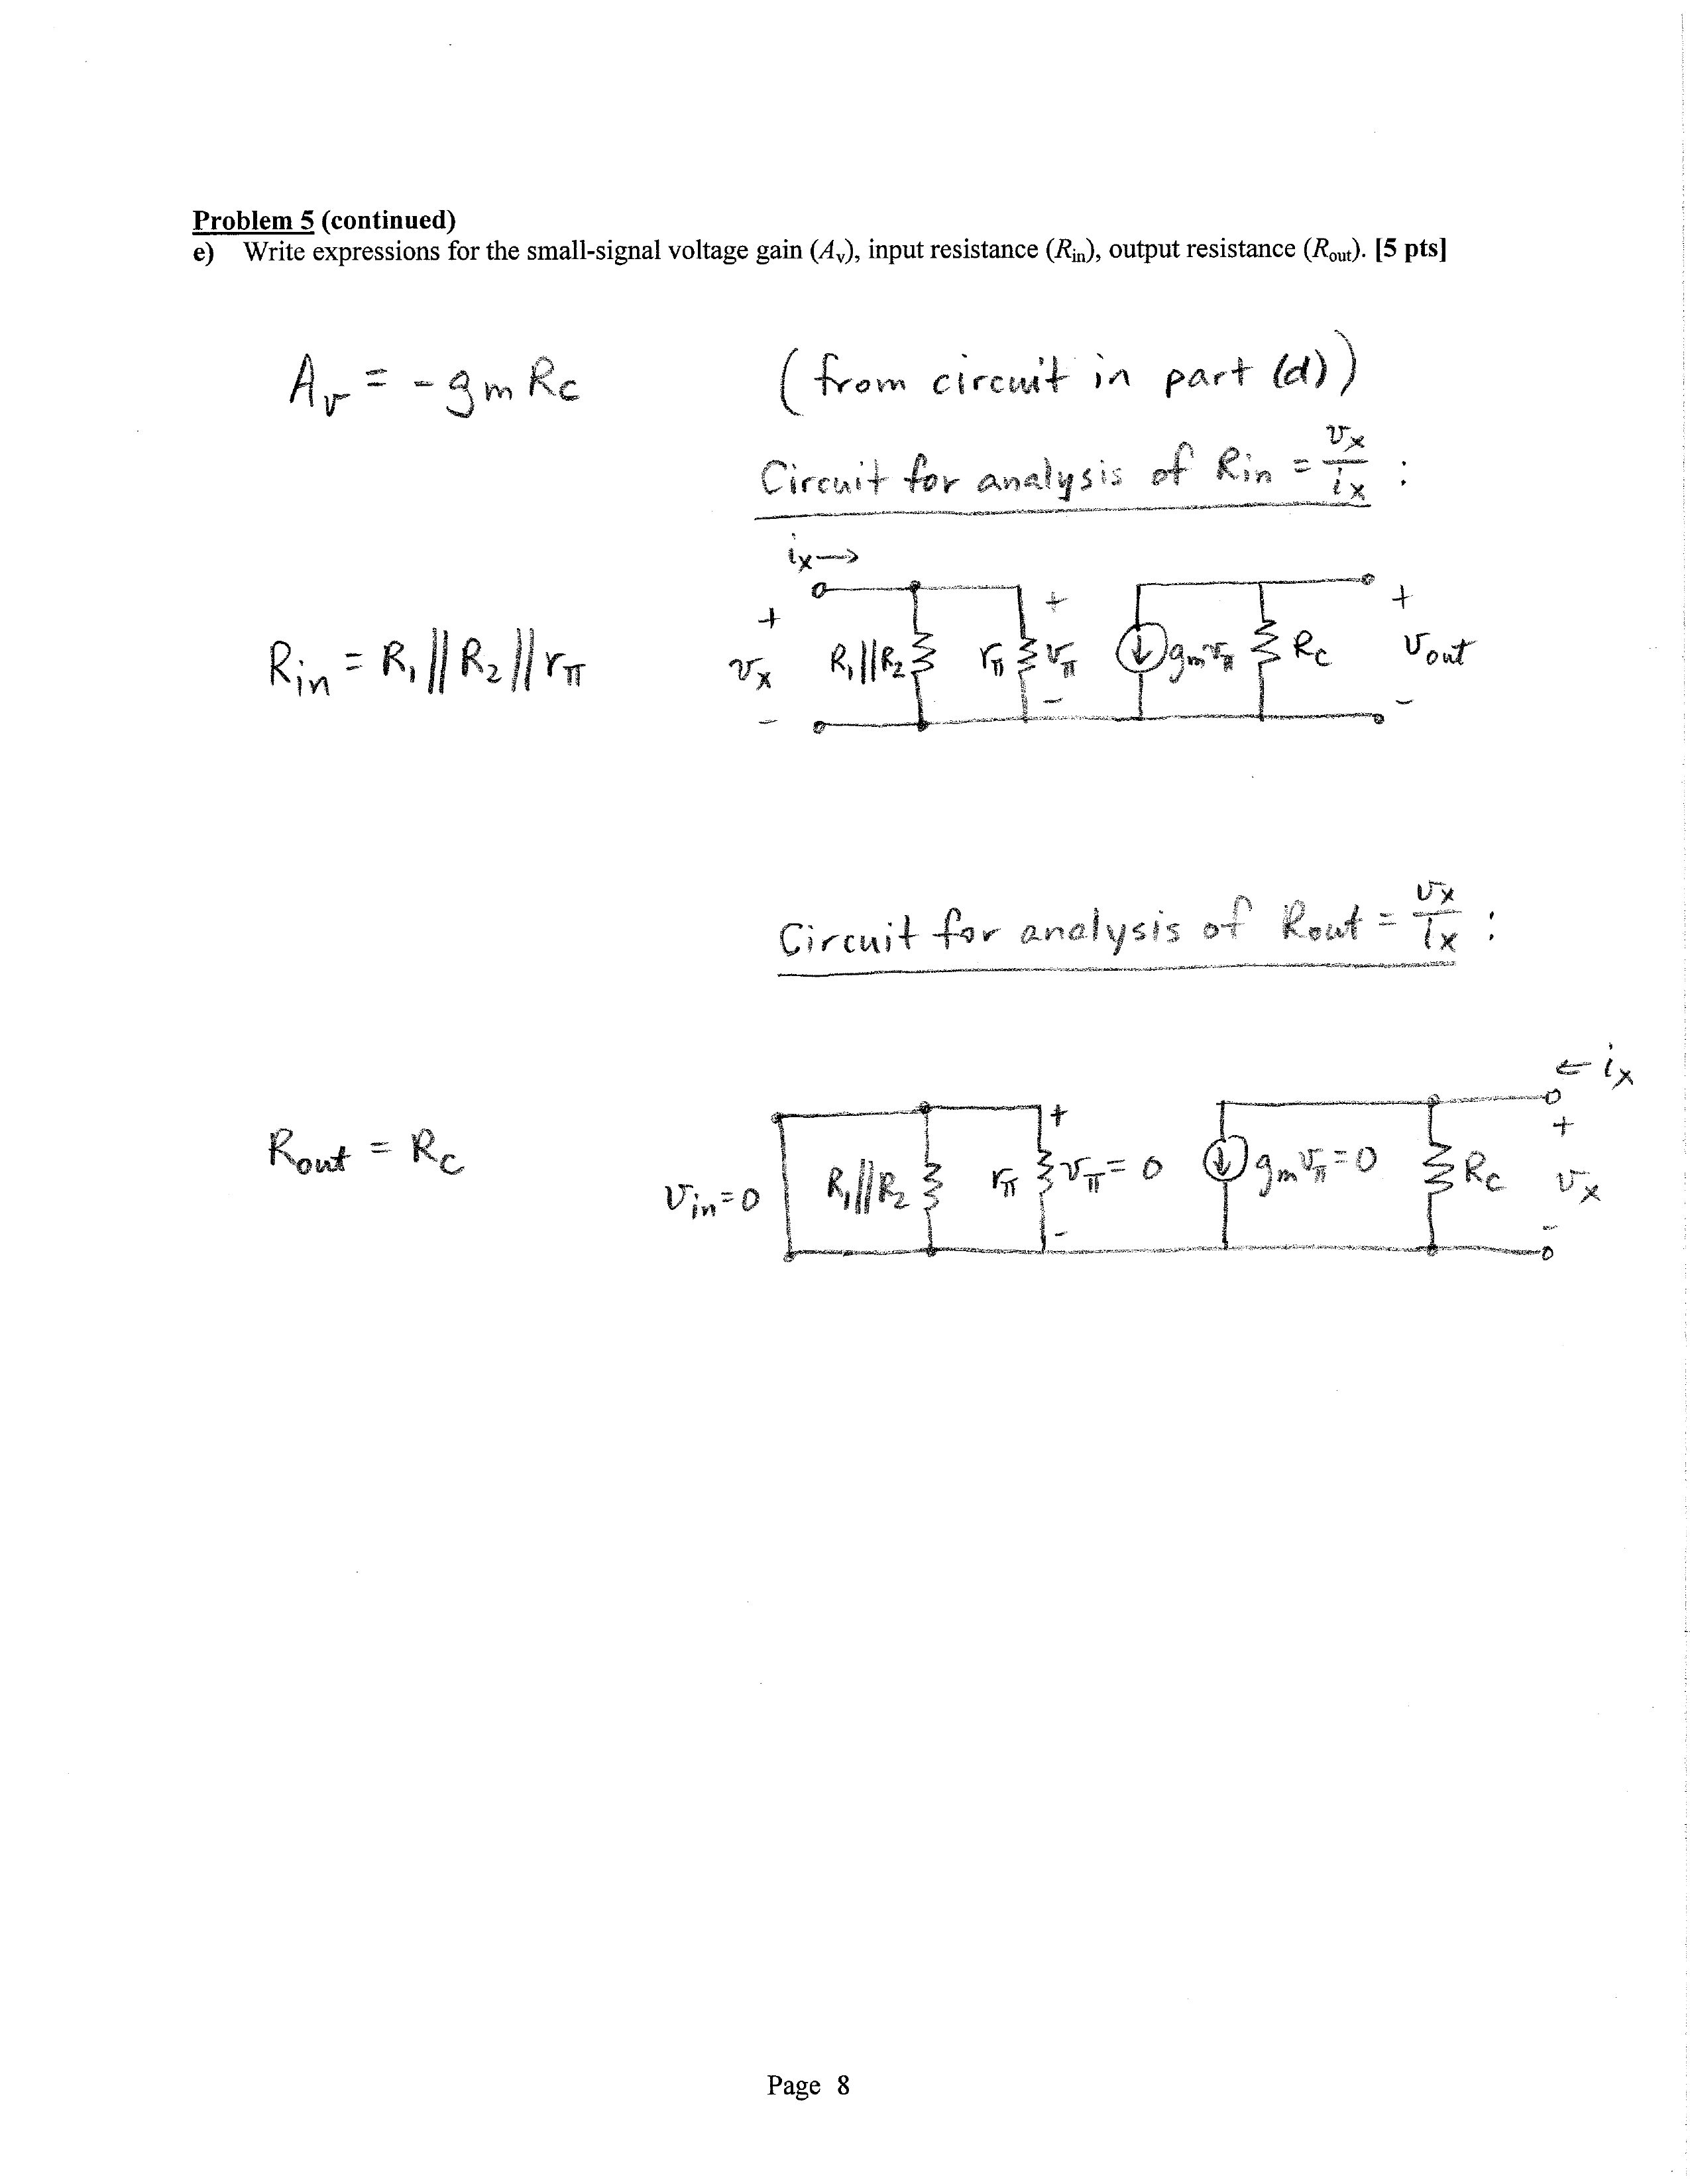 Problem 5 (continued)
e) Write expressions for the small-signal voltage gain (Av), input resistance (Rin), output resistance (Rout). [5 pts]
Av = - gm Rc (from circuit in part (d))
Circuit for analysis of Rin = vx/ix :
ix→
+ + +
Rin = R1 || R2 || rπ vx R1||R2 rπ vπ gmvπ Rc vout
- - -
Circuit for analysis of Rout = vx/ix :
← ix
+ +
Rout = Rc vin=0 R1||R2 rπ vπ = 0 gmvπ=0 Rc vx
- -
Page 8